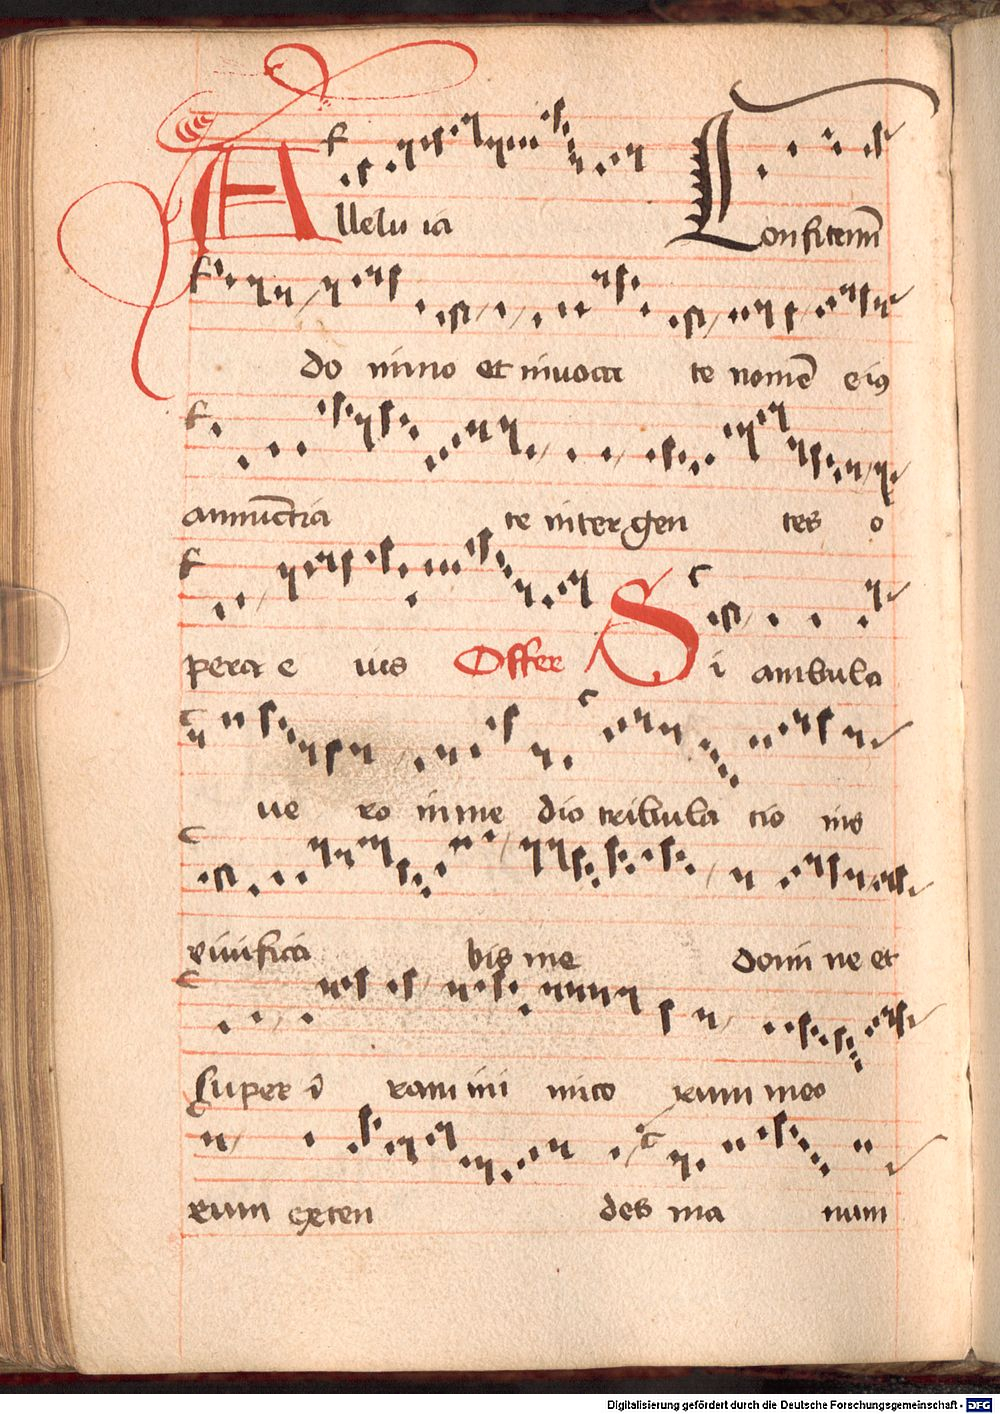 Alleluia Confitemī
domino et invoca te nomē eiꝰ
annūctia te inter gen tes o
pera e ius Offer Si ambula
ve ro in me dio tribula cio nis
vivifica bis me domi ne et
super ī ram ini mico rum meo
rum exten des ma num
Digitalisierung gefördert durch die Deutsche Forschungsgemeinschaft - DFG